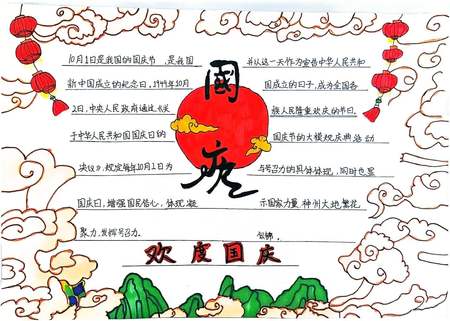 國
庆
10月1日是我国的国庆节,是我国
新中国成立的纪念日,1949年10月
2日,中央人民政府通过《关
于中华人民共和国国庆日的
决议》,规定每年10月1日为
国庆日,增强国民信心,体现凝
聚力,发挥号召力。
并从这一天作为宣告中华人民共和
国成立的日子,成为全国各
族人民隆重欢庆的节日。
国庆节的大规模庆典活动
与号召力的具体体现,同时也显
示国家力量,神州大地繁花
似锦。
欢度国庆